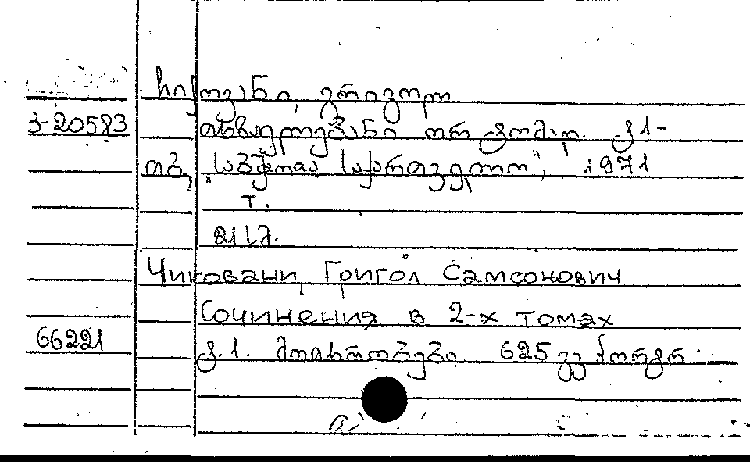 ჩიქოვანი, გრიგოლ
3-20583 თხზულებანი ორ ტომად. ტ 1-
თბ, "საბჭოთა საქართველო", 1971
т.
21 სმ.
Чиковани, Григол Самсонович
Сочинения в 2-х томах
66221 ტ. 1. მოთხრობები. 625 გვ